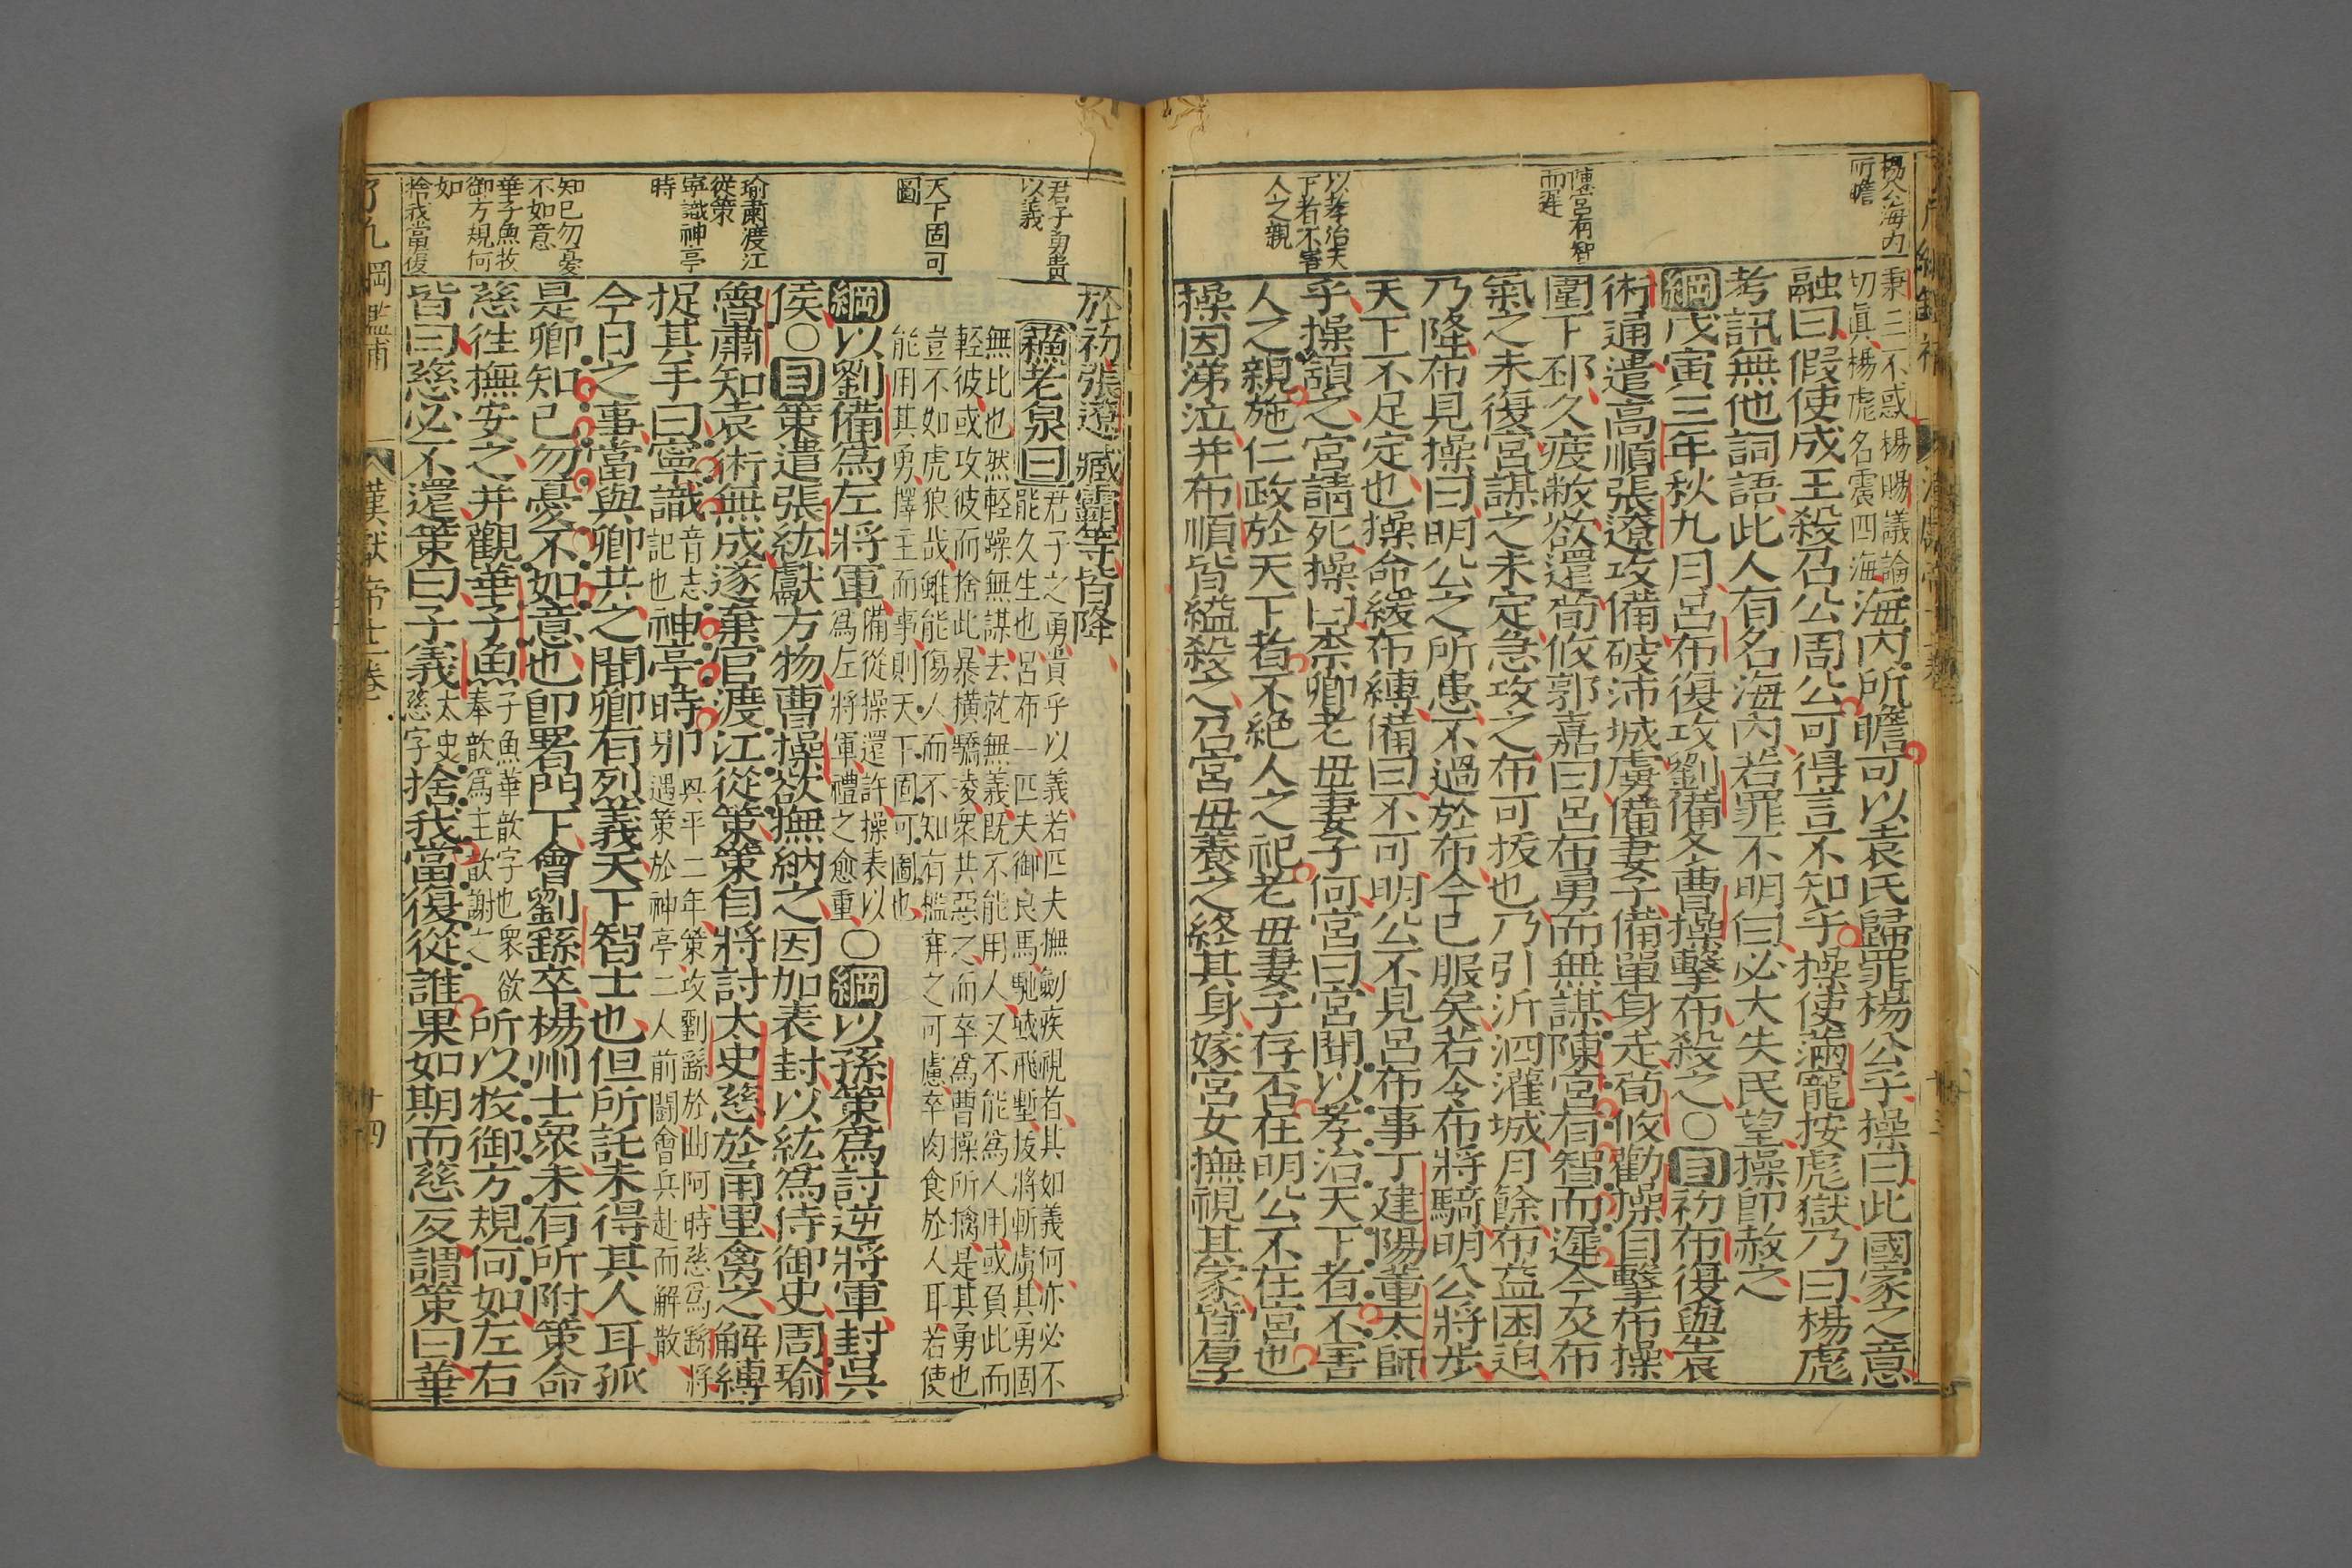 楊公海內
所瞻
陳宮有智
而遲
以孝治天
下者不害
人之親
秉三不惑楊賜議論
切眞楊彪名震四海
海內所瞻可以袁氏歸罪楊公乎操曰此國家之意
融曰假使成王殺召公周公可得言不知乎操使滿寵按彪獄乃曰楊彪
考訊無他詞語此人有名海內若罪不明白必大失民望操卽赦之
綱戊寅三年秋九月呂布復攻劉備冬曹操擊布殺之〇目初布復與袁
術通遣高順張遼攻備破沛城虜備妻子備單身走荀攸勸操自擊布操
圍下邳久疲敝欲還荀攸郭嘉曰呂布勇而無謀陳宮有智而遲今及布
氣之未復宮謀之未定急攻之布可拔也乃引沂泗灌城月餘布益困迫
乃降布見操曰明公之所患不過於布今已服矣若令布將騎明公將步
天下不足定也操命緩布縛備曰不可明公不見呂布事丁建陽董太師
乎操頷之宮請死操曰柰卿老毋妻子何宮曰宮聞以孝治天下者不害
人之親施仁政於天下者不絕人之祀老毋妻子存否在明公不在宮也
操因涕泣并布順皆縊殺之召宮毋養之終其身嫁宮女撫視其家皆厚
君子勇貴
以義
天下固可
圖
瑜肅渡江
從策
寧識神亭
時
知已勿憂
不如意
華子魚牧
御方規何
如
捨我當復
於初張遼臧霸等皆降
蘇老泉曰
君子之勇貴乎以義若匹夫撫劍疾視者其如義何亦必不
能久生也呂布一匹夫御良馬馳城飛塹拔將斬虜其勇固
無比也然輕躁無謀去就無義既不能用人又不能爲人用或負此而
輕彼或攻彼而捨此暴橫驕凌衆共惡之而卒爲曹操所擒是其勇也
豈不如虎狼哉雖能傷人而不知有檻穽之可慮卒肉食於人耳若使
能用其勇擇主而事則天下固可圖也
綱以劉備爲左將軍
備從操還許操表以
爲左將軍禮之愈重
〇綱以孫策爲討逆將軍封吳
侯〇目策遣張紘獻方物曹操欲撫納之因加表封以紘爲侍御史周瑜
魯肅知袁術無成遂棄官渡江從策策自將討太史慈於甬里禽之解縛
捉其手曰寧識
音志
記也
神亭時邪
興平二年策攻劉繇於曲阿時慈爲繇將
遇策於神亭二人前鬪會兵赴而解散
今日之事當與卿共之聞卿有烈義天下智士也但所託未得其人耳孤
是卿知已勿憂不如意也卽署門下會劉繇卒楊州士衆未有所附策命
慈往撫安之并觀華子魚
子魚華歆字也衆欲
奉歆爲主歆謝之
所以牧御方規何如左右
皆曰慈必不還策曰子義
太史
慈字
捨我當復從誰果如期而慈反謂策曰華
漢獻帝
十四